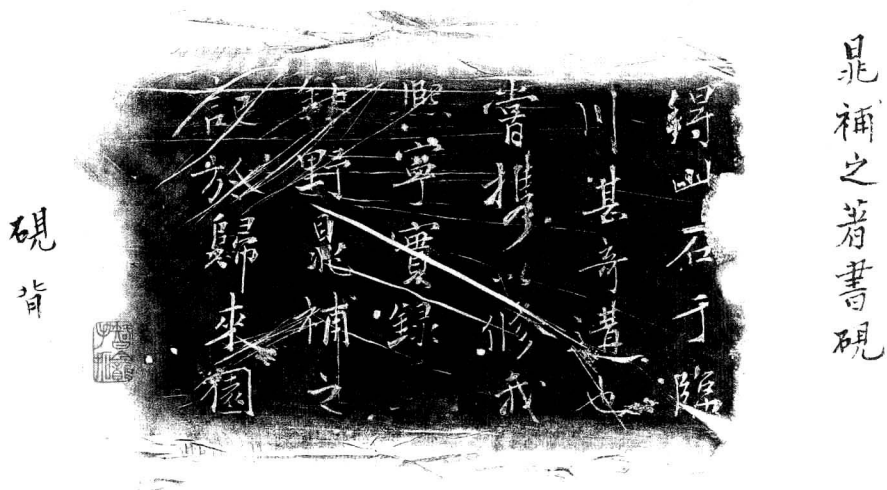 晁補之著書硯
鍀此石于臨
川甚奇遘也
嘗携以修我
熙寧實録
鉅野晁補之
記於歸來園
硯背